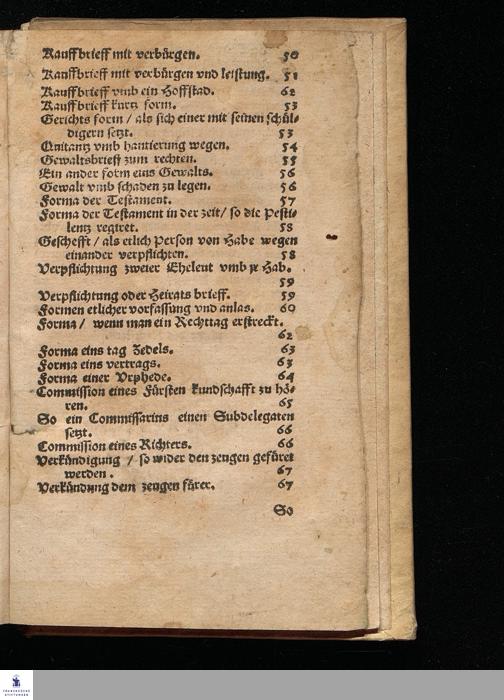 Kauffbrieff mit verbürgen. 50
Kauffbrieff mit verbürgen vnd leistung. 51
Kauffbrieff vmb ein Hoffstad. 62
Kauffbrieff kurtz form. 53
Gerichts form / als sich einer mit seinen schül-
digern setzt. 53
Quitantz vmb hantierung wegen. 54
Gewaltsbrieff zum rechten. 55
Ein ander form eins Gewalts. 56
Gewalt vmb schaden zu legen. 56
Forma der Testament. 57
Forma der Testament in der zeit / so die Pesti-
lentz regiret. 58
Geschefft / als etlich Person von Habe wegen
einander verpflichten. 58
Verpflichtung zweier Eheleut vmb jr Hab.
59
Verpflichtung oder Heirats brieff. 59
Formen etlicher vorfassung vnd anlas. 60
Forma / wenn man ein Rechttag erstreckt.
62
Forma eins tag Zedels. 63
Forma eins vertrags. 63
Forma einer Vrphede. 64
Commission eines Fürsten kundschafft zu hö-
ren. 65
So ein Commissarius einen Subdelegaten
setzt. 66
Commission eines Richters. 66
Verkündigung / so wider den zeugen gefüret
werden. 67
Verkündung dem zeugen fürer. 67
So
FRANCKESCHE
STIFTUNGEN